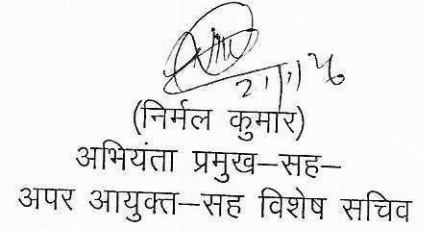 (निर्मल कुमार)
अभियंता प्रमुख–सह–
अपर आयुक्त–सह विशेष सचिव